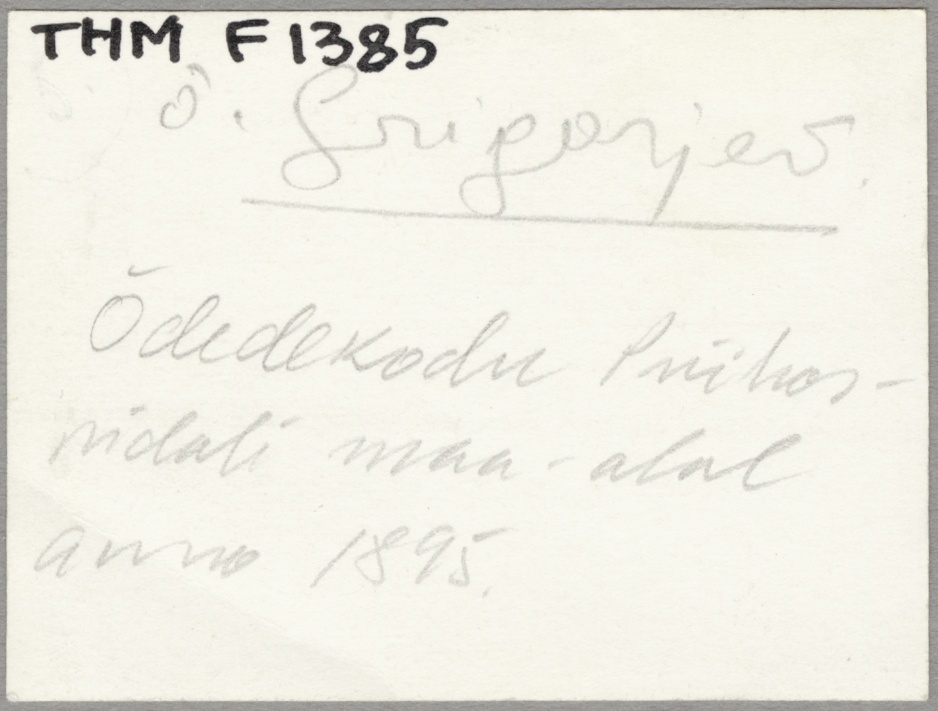 THM F 1385
Õ. Grigorjev.
Õdedekodu Priihos-
pidali maa-alal
anno 1895.